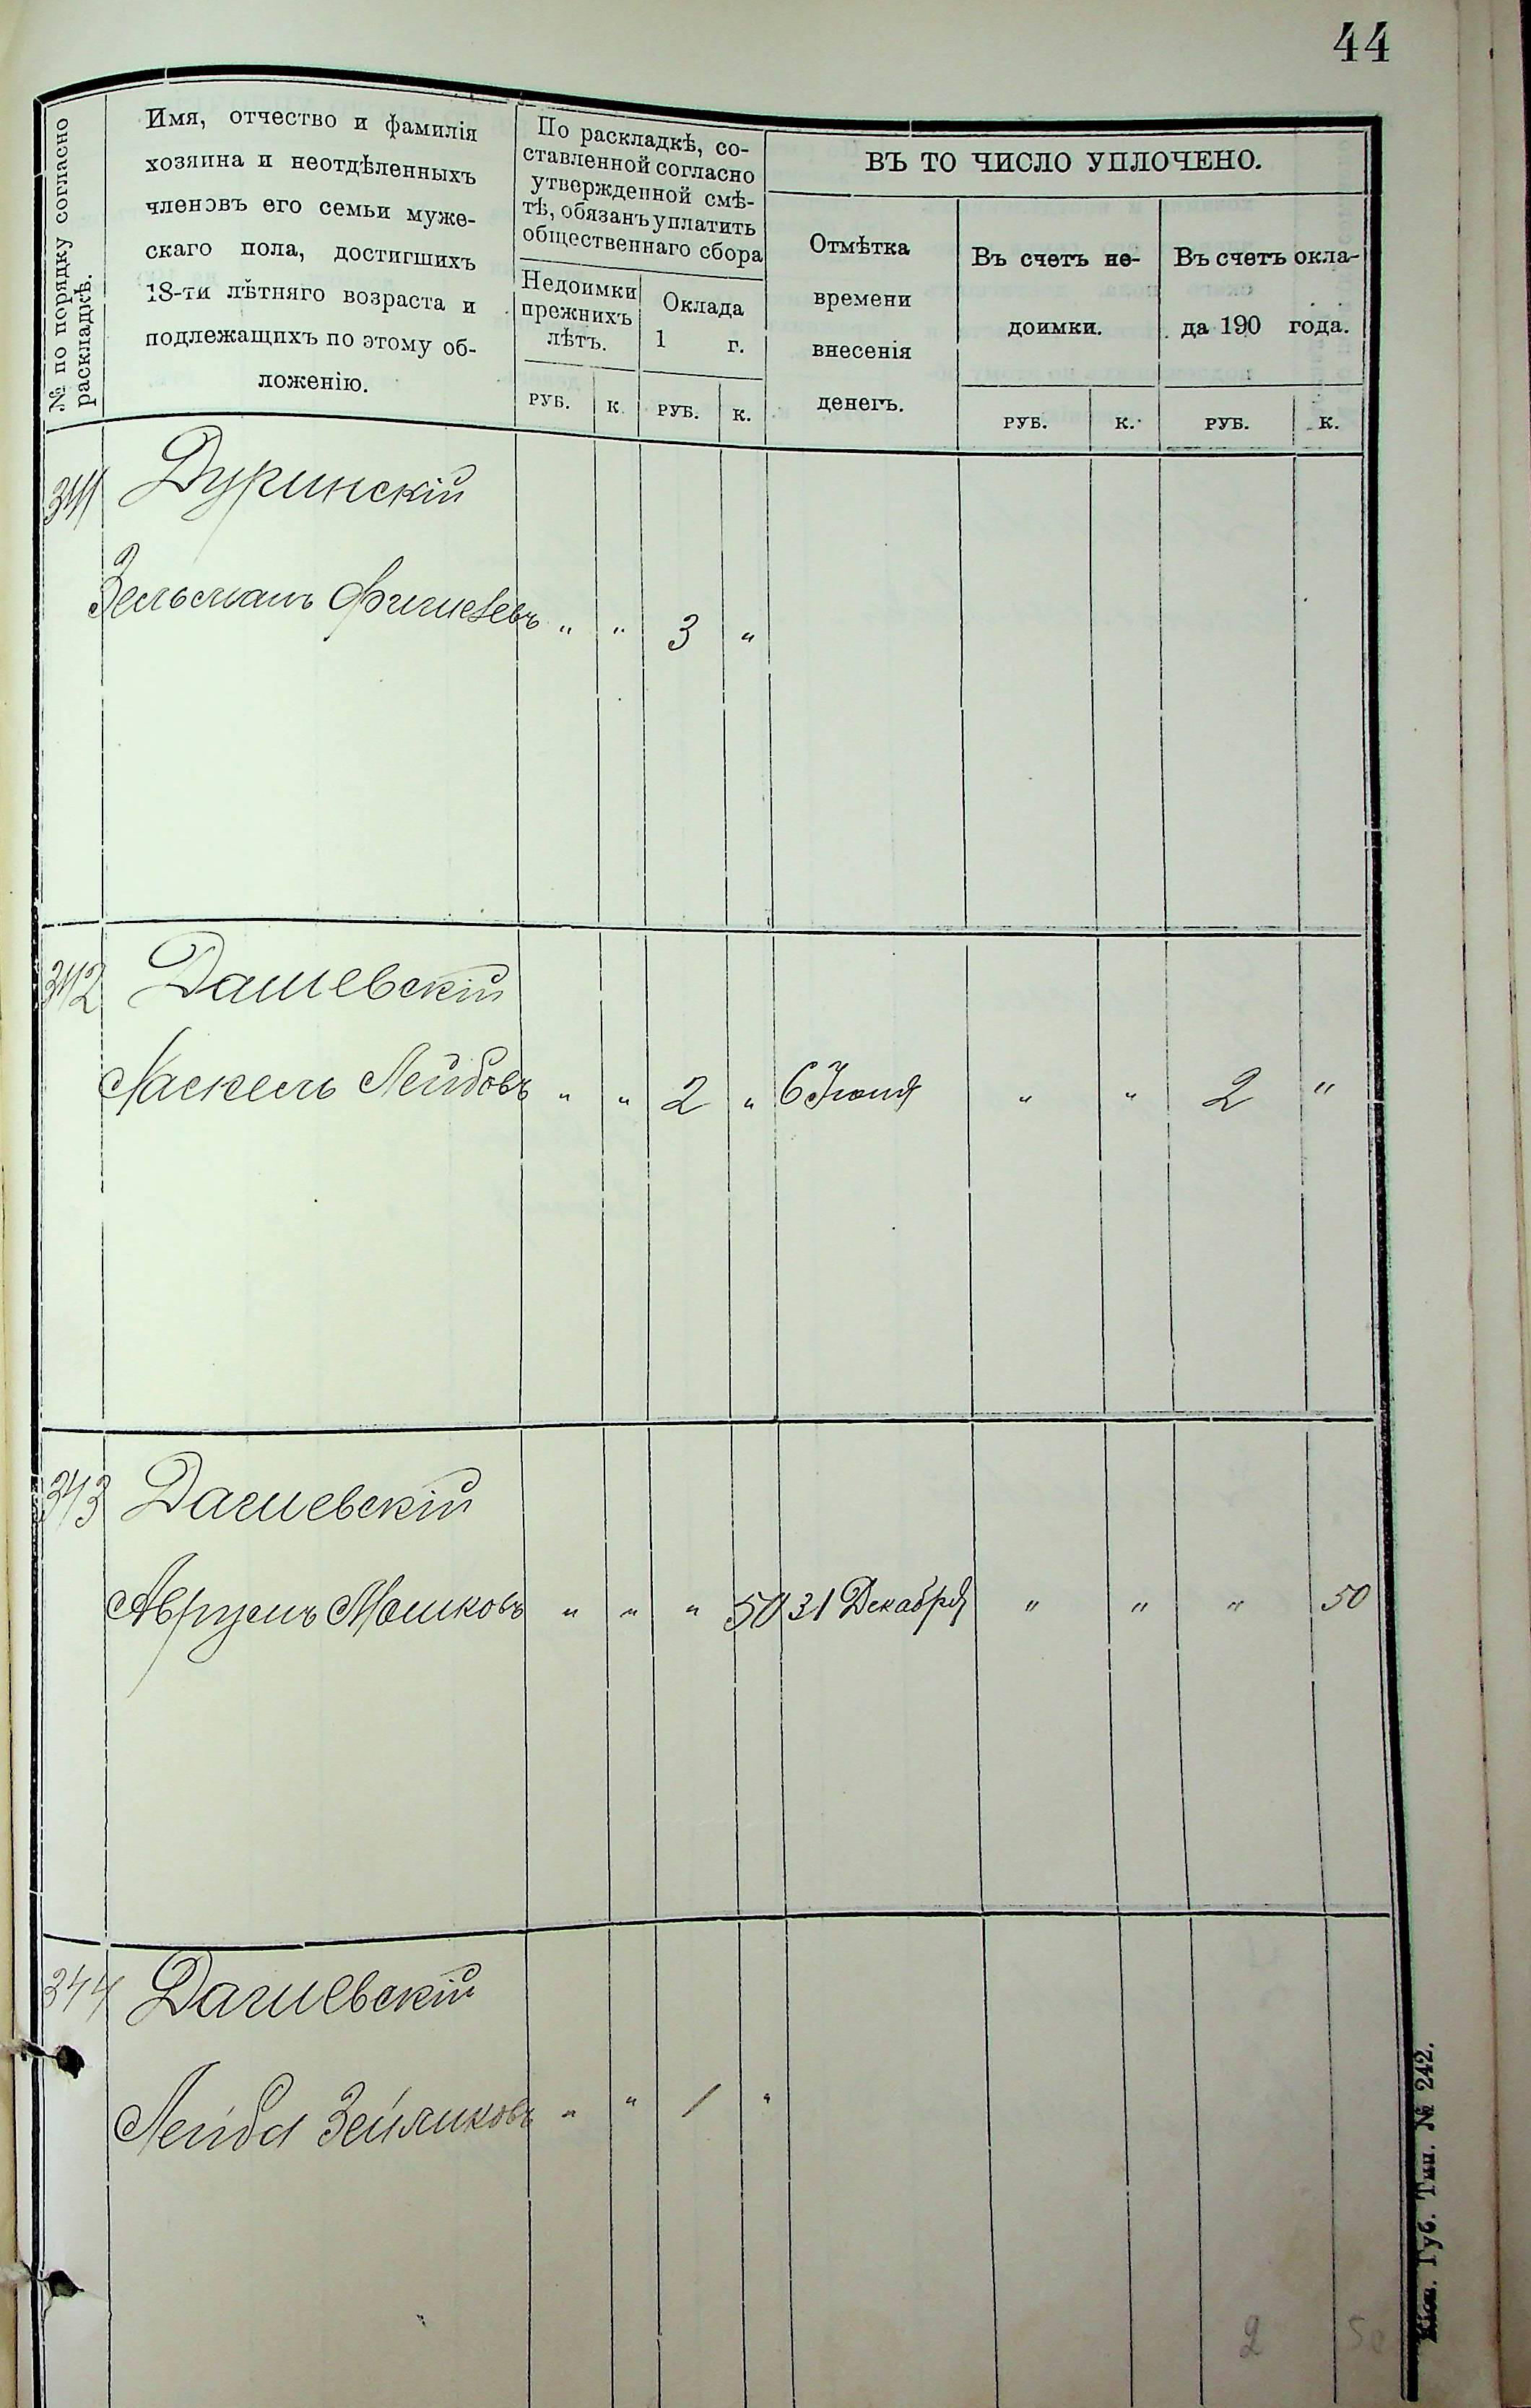 44
№ по порядку согласно
раскладкѣ.
Имя, отчество и фамилія
хозяина и неотдѣленныхъ
членовъ его семьи муже-
скаго пола, достигшихъ
18-ти лѣтняго возраста и
подлежащихъ по этому об-
ложенію.
По раскладкѣ, со-
ставленной согласно
утвержденной смѣ-
тѣ, обязанъ уплатить
общественнаго сбора
Недоимки
прежнихъ
лѣтъ.
Оклада
1 г.
ВЪ ТО ЧИСЛО УПЛОЧЕНО.
Отмѣтка
времени
внесенія
денегъ.
Въ счетъ не-
доимки.
Въ счетъ окла-
да 190 года.
РУБ. К. РУБ. К. РУБ. К. РУБ. К.
341 Дуринскій
Зельманъ " " 3 "
342 Дашевскій
Хаскель Лейбовъ " " 2 " 6 Іюня " " 2 "
343 Дашевскій
Аврумъ Мошковъ " " " 50 31 Декабря " " " 50
344 Дашевскій
Лейба Зейликовъ " " 1 "
2 50
Кіев. Губ. Тип. № 242.